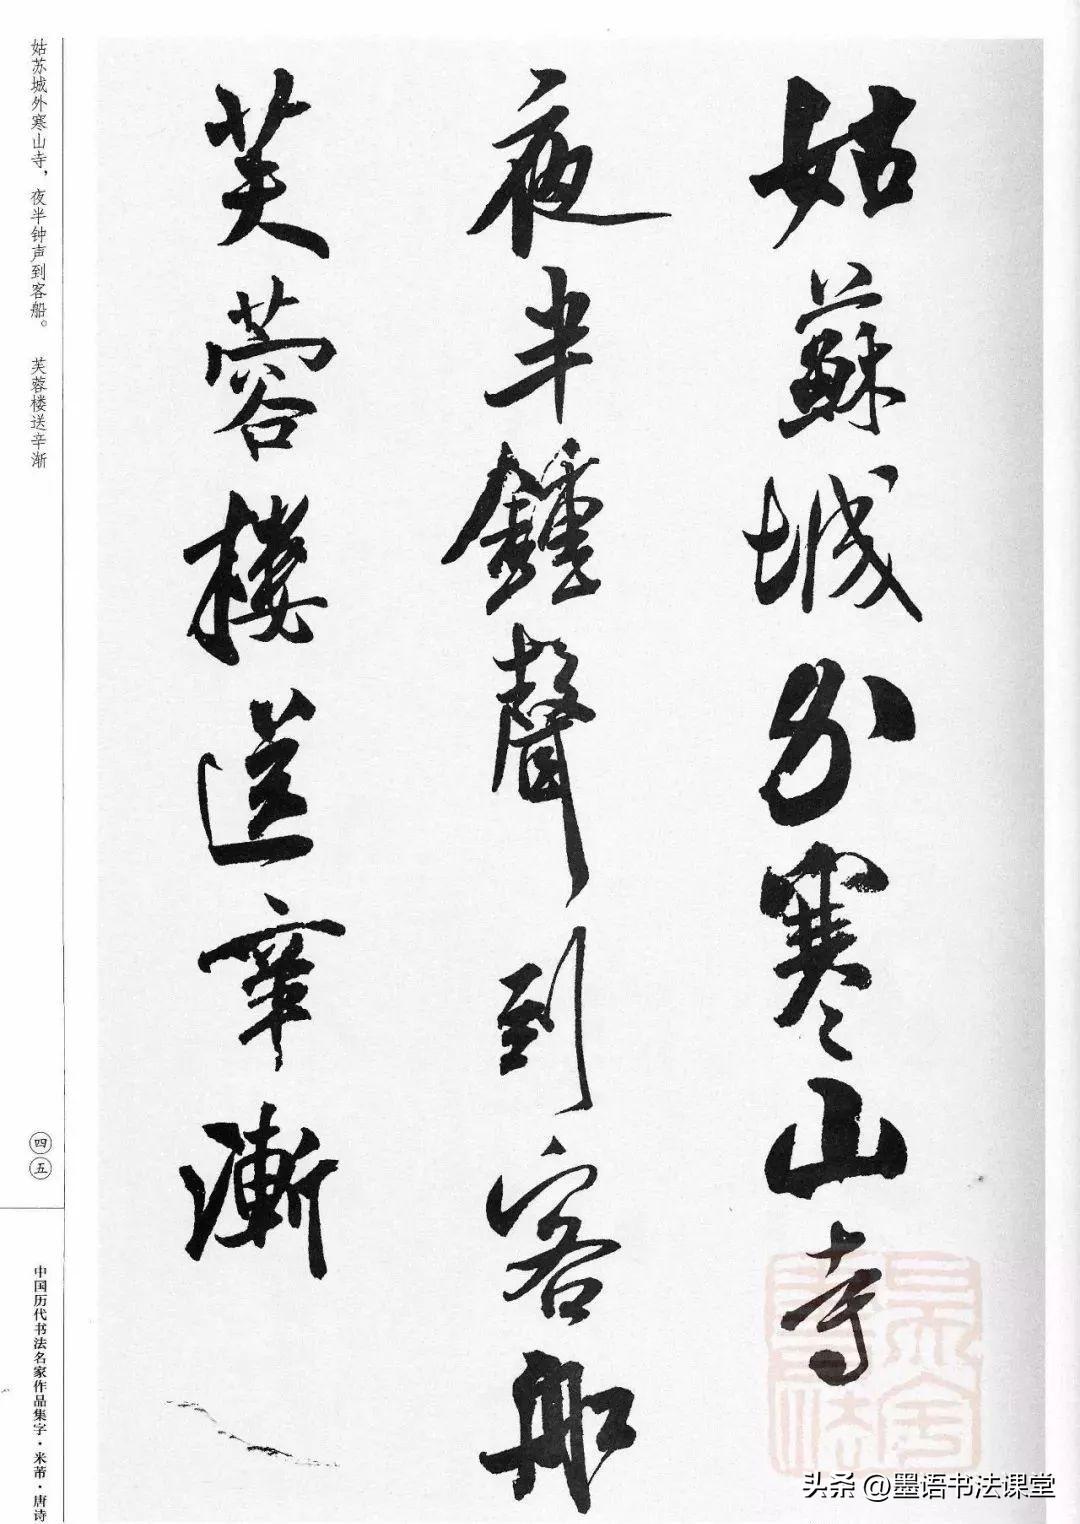 姑蘇城外寒山寺
夜半鍾聲到客船
芙蓉樓送辛漸
姑苏城外寒山寺，夜半钟声到客船。 芙蓉楼送辛渐
四五
中国历代书法名家作品集字·米芾·唐诗
头条 @墨语书法课堂